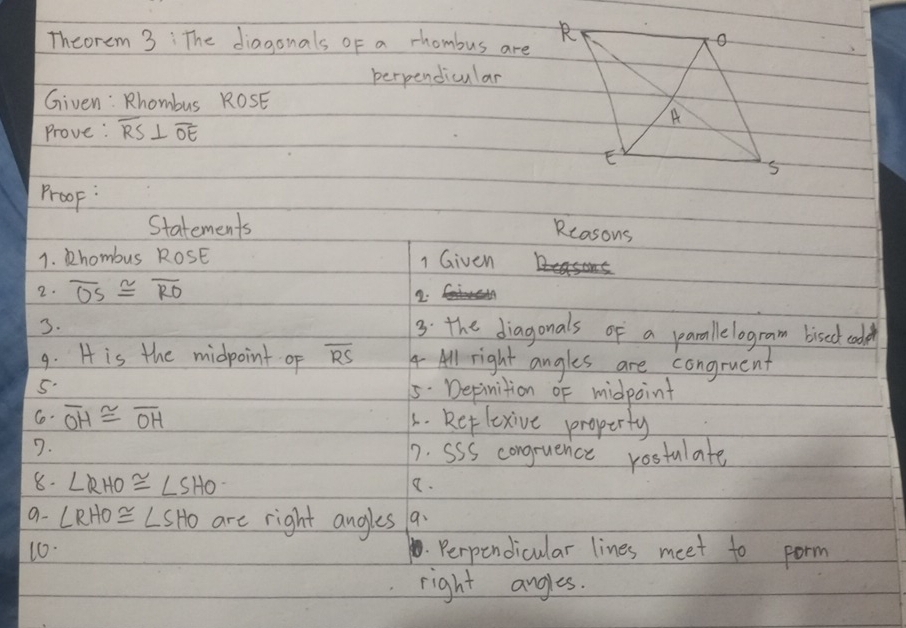 Theorem 3 : The diagonals of a rhombus are
perpendicular
Given : Rhombus ROSE
Prove : R̅S̅ ⊥ O̅E̅
R
O
A
E
S
Proof :
Statements
Reasons
1. Rhombus ROSE
1 Given
2. O̅S̅ ≅ R̅O̅
2. Given
3.
3. the diagonals of a parallelogram bisect
4. H is the midpoint of R̅S̅
4- All right angles are congruent
5.
5- Definition of midpoint
6. O̅H̅ ≅ O̅H̅
6. Reflexive property
7.
7. SSS congruence postulate
8. ∠RHO ≅ ∠SHO
8.
9- ∠RHO ≅ ∠SHO are right angles
9.
10.
10. Perpendicular lines meet to form
right angles.